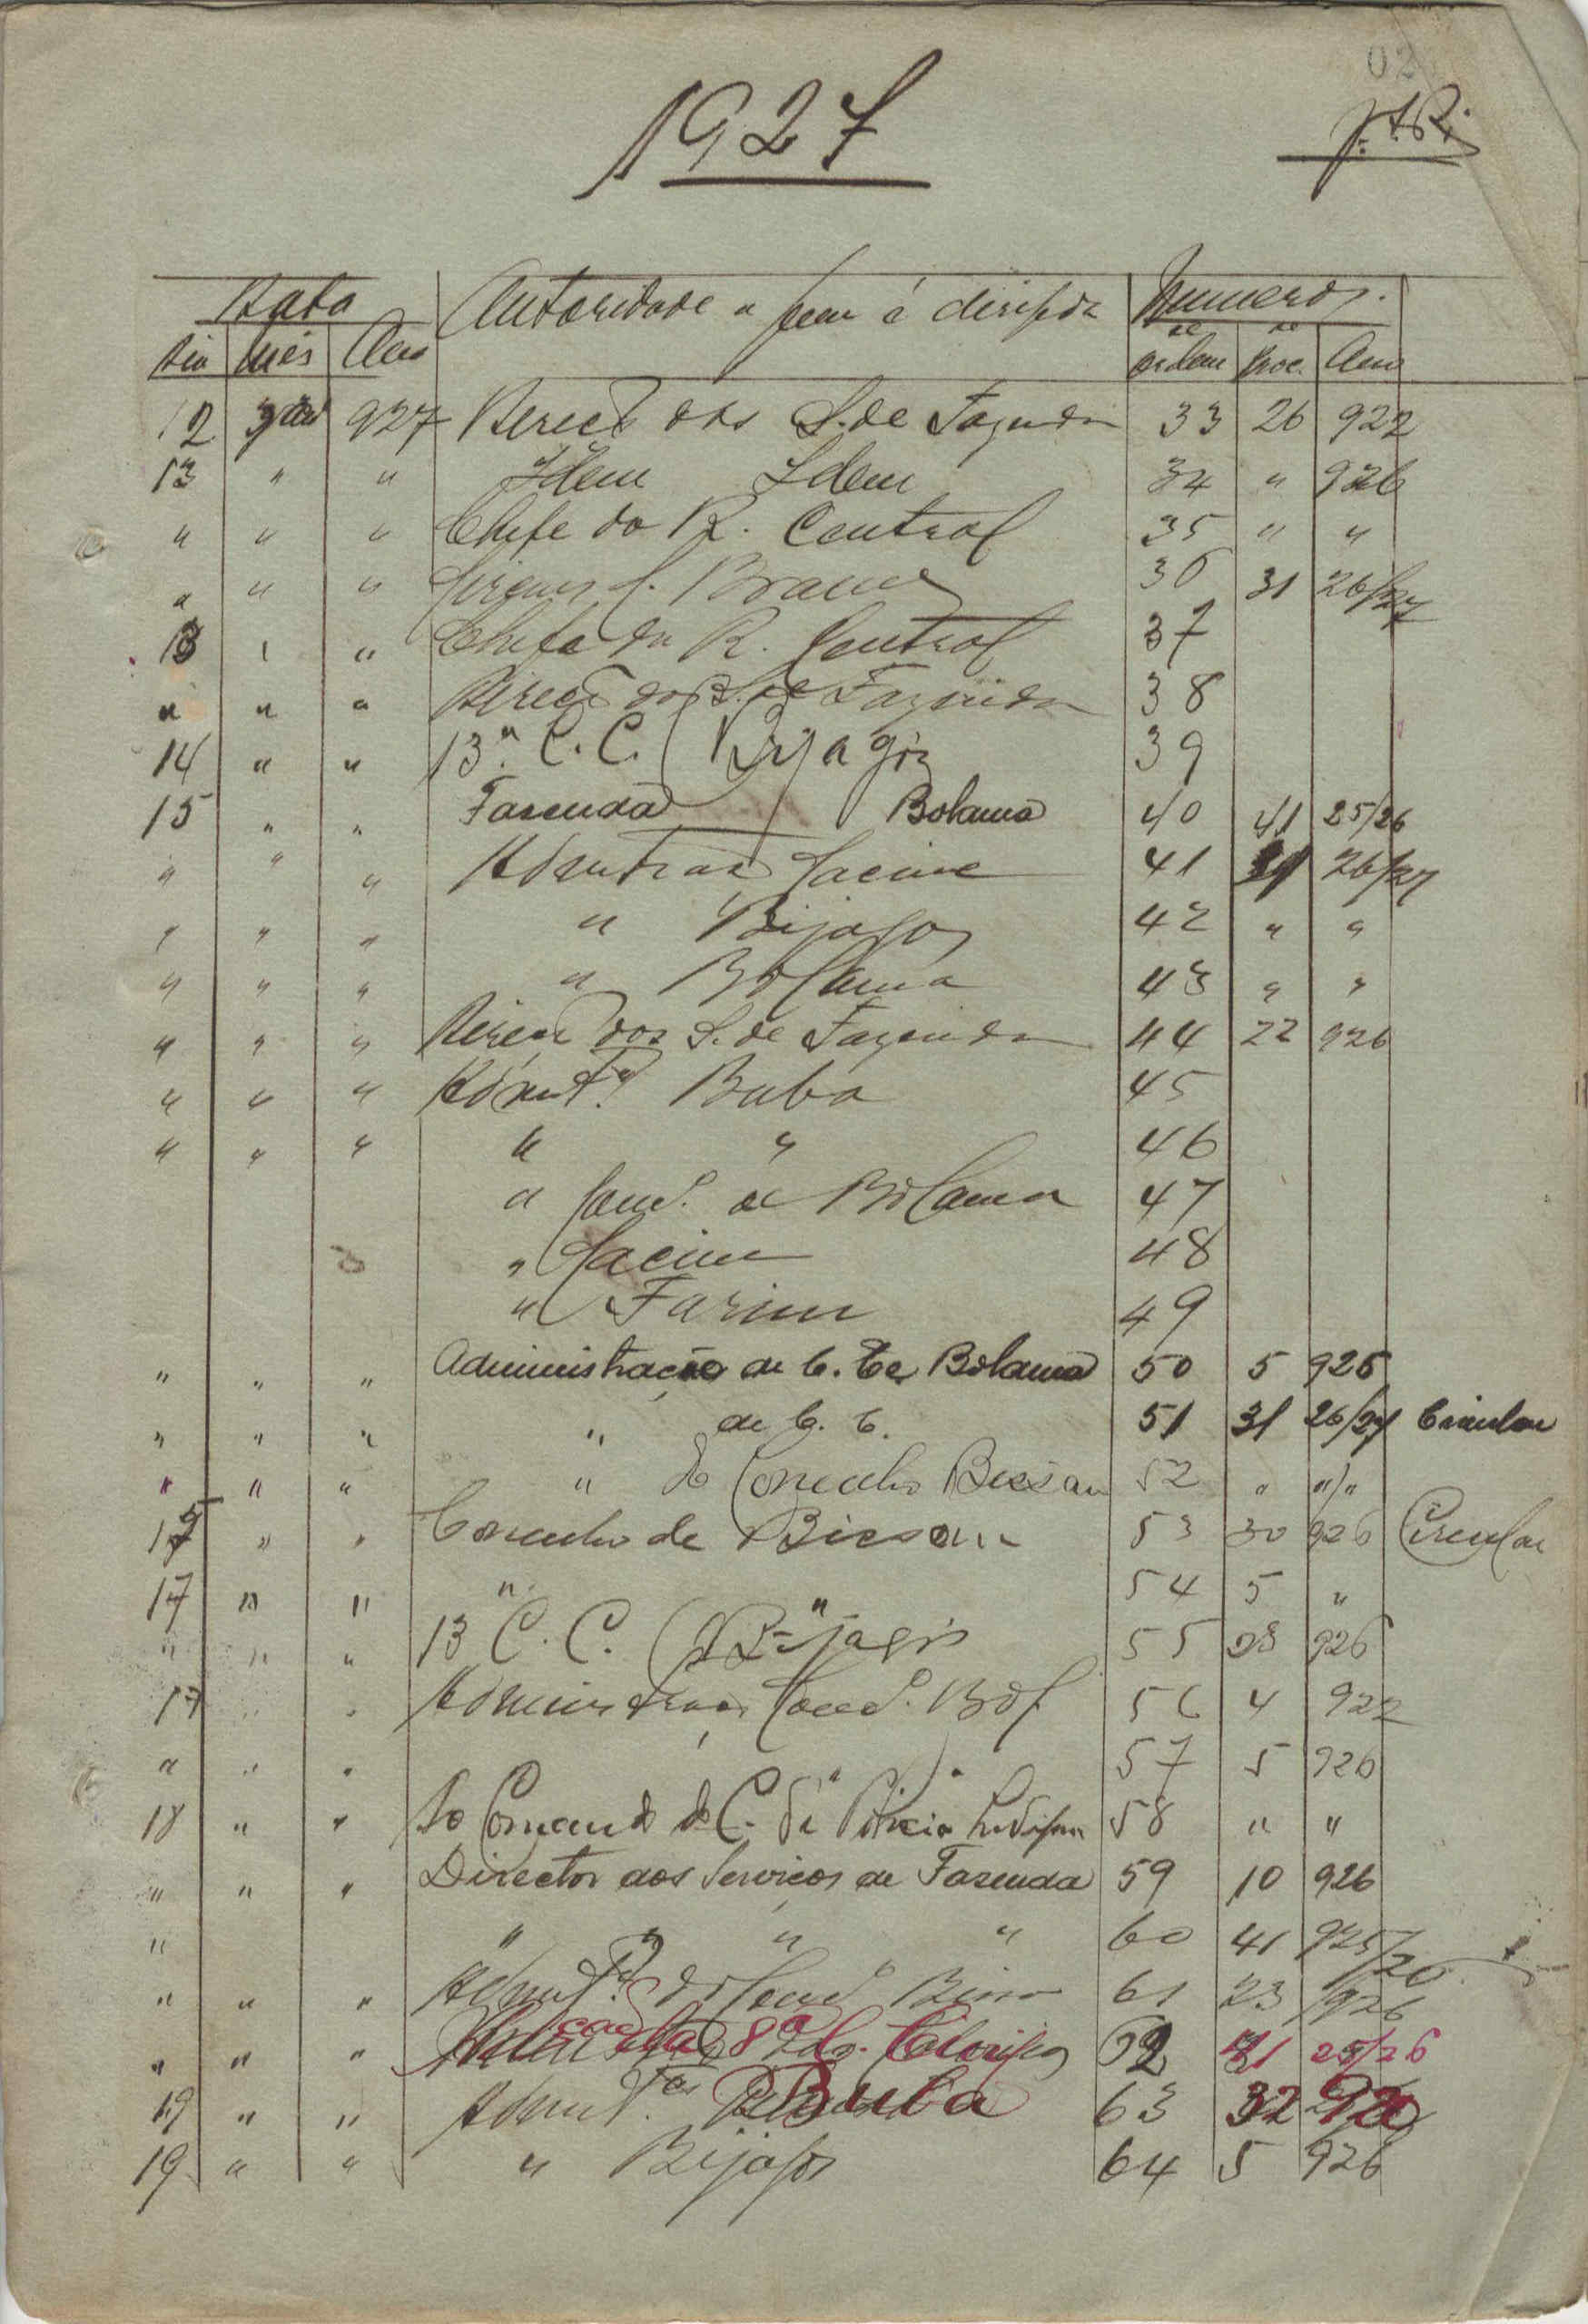 02
1927
Data Autoridade a quem é dirigida Numeros.
de de
Dia Mês Ano ordem Proc. Ano
12 927 Direcç dos S. de Fazenda 33 26 922
13 " " Idem Idem 34 " 926
" " " Chefe da R. Central 35 " "
" " " 36 31 26/27
13 " " Chefe da R. Central 37
" " " Direcç dos S. de Fazenda 38
14 " " 13ª C. C. (Bijagóz 39
15 " " Fazenda Bolama 40 41 25/26
" " " Administrador Cacine 41 31 26/27
" " " " Bijagoz 42 " "
" " " " Bolama 43 " "
" " " Direcç dos S. de Fazenda 44 22 926
" " " Admt.or Buba 45
" " " " " 46
" Conc. de Bolama 47
" Cacine 48
" Farim 49
" " " Administração de C. C. Bolama 50 5 926
" " " " de C. C. 51 31 26/27 Circular
" " " " do Concelho Bissau 52 " "/"
15 " " Concelho de Bissau 53 30 926 Circular
17 " " " " 54 5 "
" " " 13 C. C. (Bijagós 55 23 926
17 " " Administrador Conc. Bol 56 4 922
" " " " " 57 5 926
18 " " Ao Comando do C. de Policia Indigena 58 " "
" " " Director dos Serviços de Fazenda 59 10 926
" " " " " 60 41 925/26
" " " Admt.or do Conc. Bissau 61 23 926
" " " 8ª 62 41 25/26
19 " " Admt.or Buba 63 32 920
19 " " " Bijagos 64 5 926